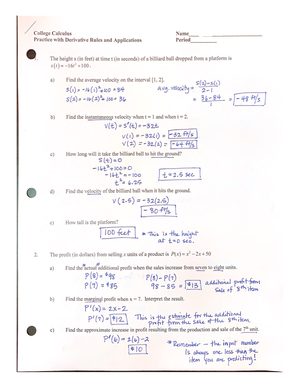 College Calculus Name
Practice with Derivative Rules and Applications Period
1. The height s (in feet) at time t (in seconds) of a billiard ball dropped from a platform is
s(t) = -16t² + 100.
a) Find the average velocity on the interval [1, 2].
s(1) = -16(1)² + 100 = 84
s(2) = -16(2)² + 100 = 36
avg. velocity = s(2)-s(1) / 2-1
= 36-84 / 1 = -48 ft/s
b) Find the instantaneous velocity when t = 1 and when t = 2.
v(t) = s'(t) = -32t
v(1) = -32(1) = -32 ft/s
v(2) = -32(2) = -64 ft/s
c) How long will it take the billiard ball to hit the ground?
s(t) = 0
-16t² + 100 = 0
-16t² = -100
t² = 6.25
t = 2.5 sec
d) Find the velocity of the billiard ball when it hits the ground.
v(2.5) = -32(2.5)
-80 ft/s
e) How tall is the platform?
100 ft
* This is the height at t=0 sec.
2. The profit (in dollars) from selling x units of a product is P(x) = x² - 2x + 50
a) Find the actual additional profit when the sales increase from seven to eight units.
P(8) = $98
P(7) = $85
P(8) - P(7)
98 - 85 = $13
additional profit from
sale of 8th item
b) Find the marginal profit when x = 7. Interpret the result.
P'(x) = 2x - 2
P'(7) = $12
This is the estimate for the additional
profit from the sale of the 8th item
c) Find the approximate increase in profit resulting from the production and sale of the 7th unit.
P'(6) = 2(6) - 2
$10
* Remember - the input number
is always one less than the
item you are predicting!